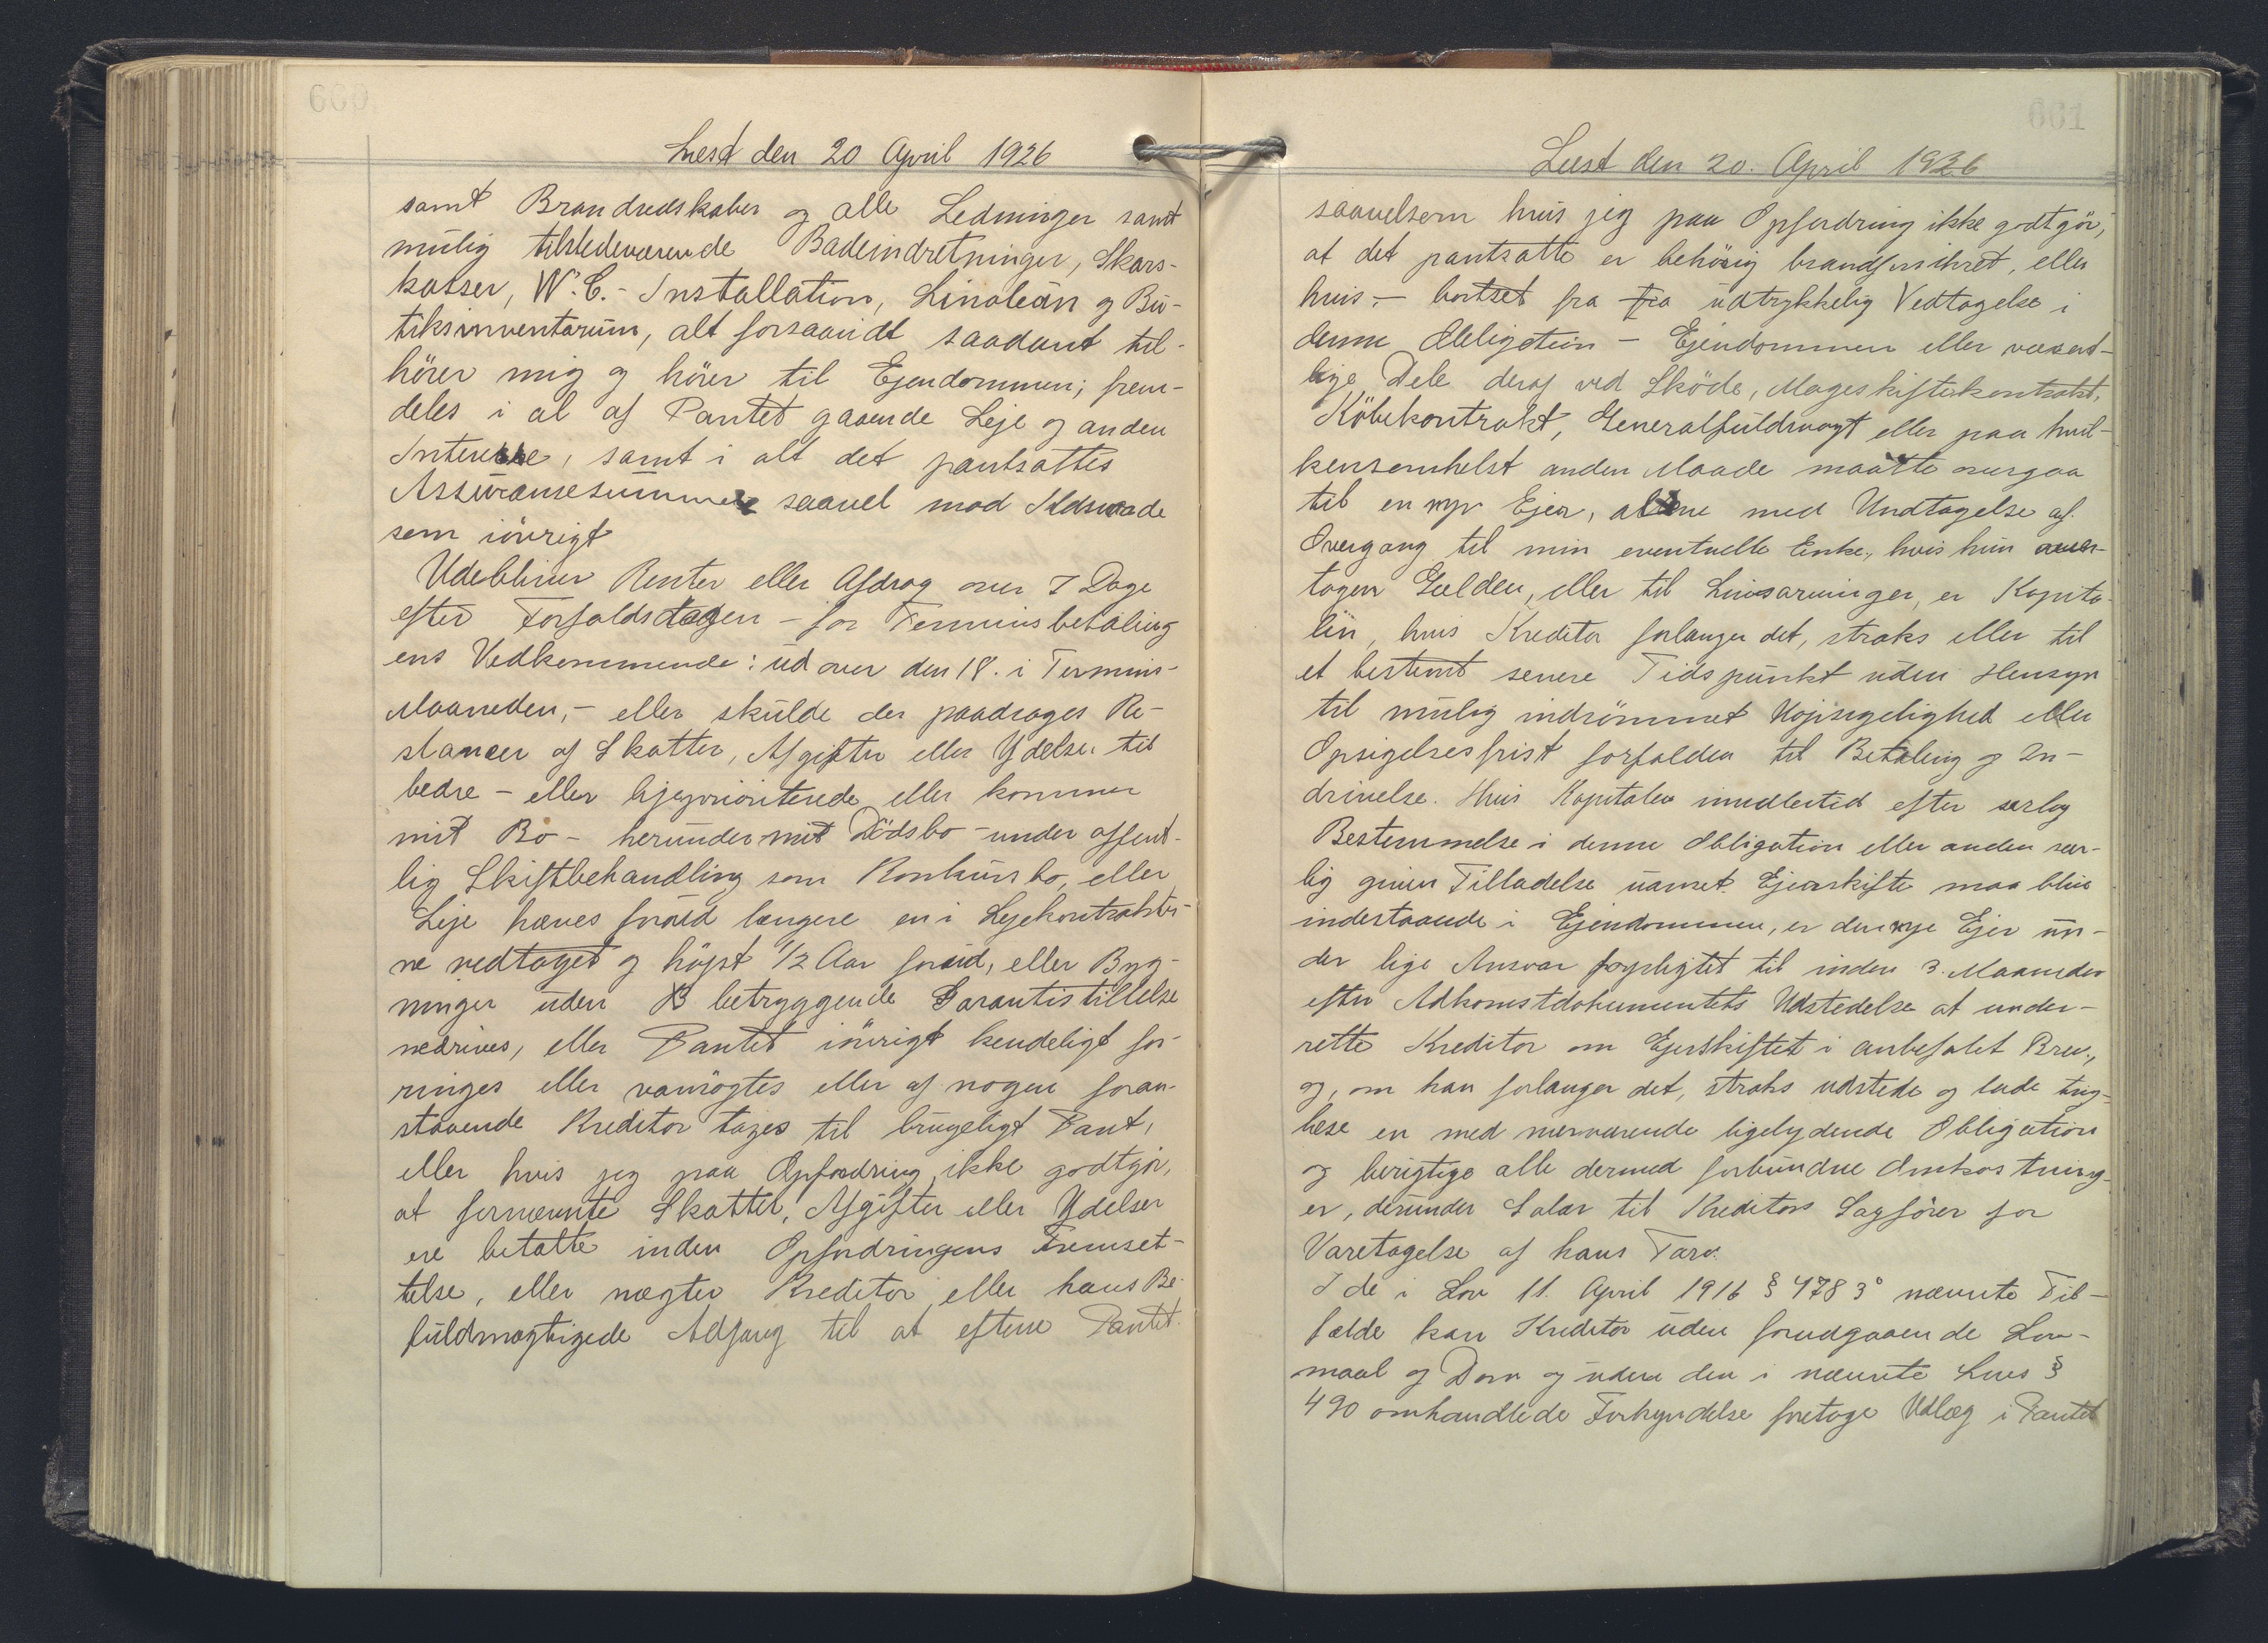 660
Læst den 20 April 1926
samt Brandredskaber og alle Ledninger samt
mulig tilstedeværende Badeindretninger, Skors-
kasser, W.C.- Installation, Linoleum og Bu-
tiksinventarium, alt forsaavidt saadant til-
hører mig og hører til Ejendommen; frem-
deles i al af Pantet gaaende Leje og anden
Interesse, samt i alt det pantsattes
Assurancesummer saavel mod Ildsvaade
som iøvrigt
Udebliver Renter eller Afdrag over 7 Dage
efter Forfaldsdagen - for Terminsbetaling
ens Vedkommende: ud over den 18. i Termins-
Maaneden, - eller skulde der paadrages Re-
stancer af Skatter, Afgifter eller Ydelser til
bedre - eller ligeprioriterede eller kommer
mit Bo - herunder mit Dødsbo - under offent-
lig Skiftbehandling som Konkursbo, eller
Leje hæves forud længere en i Lejekontrakter-
ne vedtaget og højst 1/2 Aar forud, eller Byg-
ninger uden betryggende Garantistillelse
nedrives, eller Pantet iøvrigt kendeligt for-
ringes eller vanrøgtes eller af nogen foran-
staaende Kreditor tages til brugeligt Pant,
eller hvis jeg paa Opfordring ikke godtgør,
at fornævnte Skatter, Afgifter eller Ydelser
ere betalte inden Opfordringens Fremset-
telse, eller nægter Kreditor eller hans Be-
fuldmægtigede Adgang til at efterse Pantet.
661
Læst den 20. April 1926
saavelsom hvis jeg paa Opfordring ikke godtgør,
at det pantsatte er behørig brandforsikret, eller
hvis - bortset fra fra udtrykkelig Vedtagelse i
denne Obligation - Ejendommen eller væsent-
lige Dele deraf ved Skøde, Mageskiftekontrakt,
Købekontrakt, Generalfuldmagt eller paa hvil-
kensomhelst anden Maade maatte overgaa
til en ny Ejer, alene med Undtagelse af
Overgang til min eventuelle Enke, hvis hun over-
tager Gælden, eller til Livsarvinger, er Kapita-
len, hvis Kreditor forlanger det, straks eller til
et bestemt senere Tidspunkt uden Hensyn
til mulig indrømmet Uopsigelighed eller
Opsigelsesfrist forfalden til Betaling og In-
drivelse. Hvis Kapitalen imidlertid efter særlig
Bestemmelse i denne Obligation eller anden sær-
lig given Tilladelse uanset Ejerskifte maa blive
indestaaende i Ejendommen, er den nye Ejer un-
der lige Ansvar forpligtet til inden 3 Maaneder
efter Adkomstdokumentets Udstedelse at under-
rette Kreditor om Ejerskiftet i anbefalet Brev,
og, om han forlanger det, straks udstede og lade ting-
læse en med nærværende ligelydende Obligation
og berigtige alle dermed forbundne Omkostning-
er, derunder Salær til Kreditors Sagfører for
Varetagelse af hans Tarv.
I de i Lov 11. April 1916 § 478 3° nævnte Til-
fælde kan Kreditor uden forudgaaende Lov-
maal og Dom og uden den i nævnte Lovs §
490 omhandlede Forkyndelse foretage Udlæg i Pantet